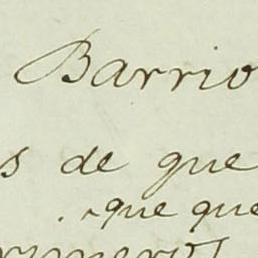 Barrio
s de que
que que
rimeros